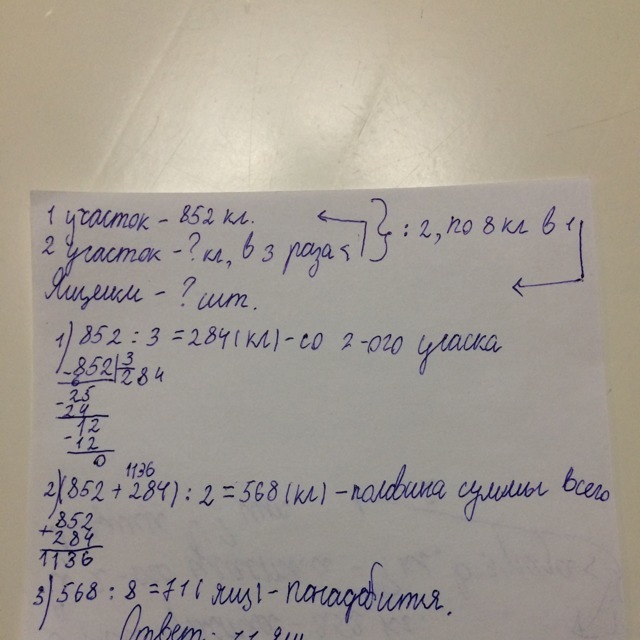 1 участок - 852 кг.
2 участок - ? кг, в 3 раза < } : 2, по 8 кг в 1
Ящики - ? шт.
1) 852 : 3 = 284 (кг) - со 2-ого учаска
-852|3
6 284
-25
24
-12
12
0
1136
2) (852 + 284) : 2 = 568 (кг) - половина суммы всего
+852
284
1136
3) 568 : 8 = 71 (ящ) - понадобится.
Ответ: 71 ящ